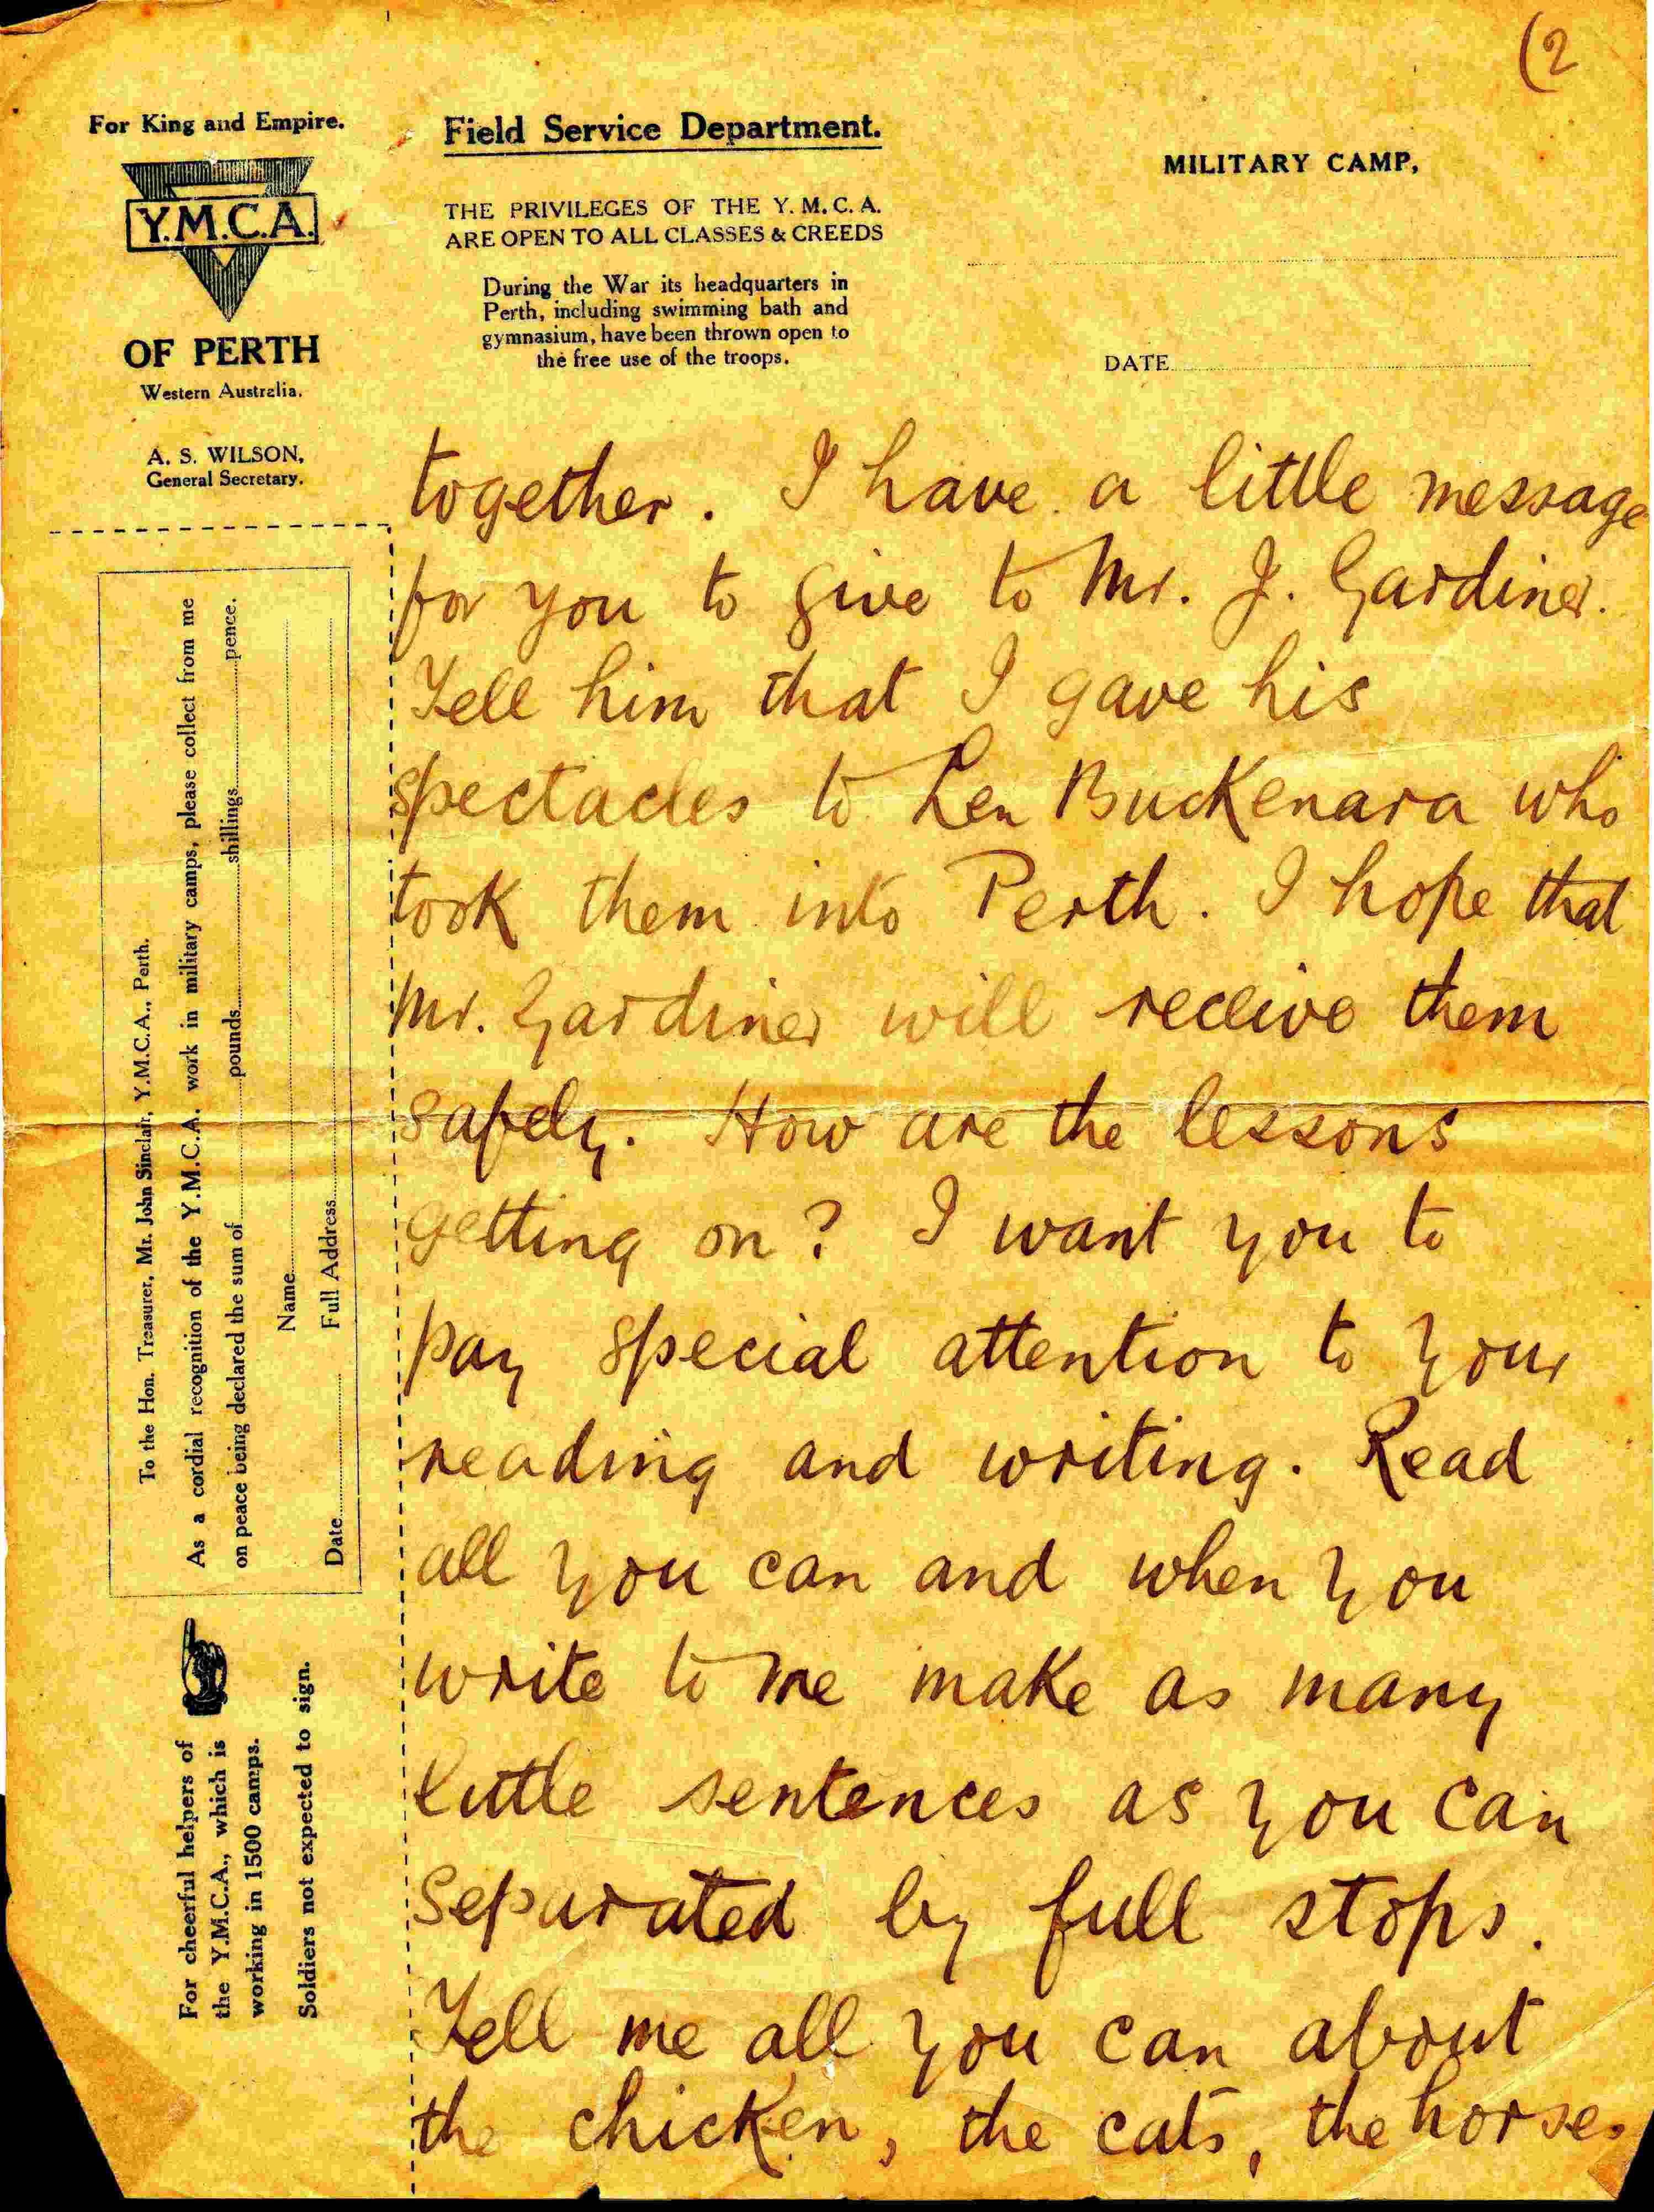 (2
For King and Empire.
Y.M.C.A.
OF PERTH
Western Australia.
A. S. WILSON,
General Secretary.
Field Service Department.
THE PRIVILEGES OF THE Y. M. C. A.
ARE OPEN TO ALL CLASSES & CREEDS
During the War its headquarters in
Perth, including swimming bath and
gymnasium, have been thrown open to
the free use of the troops.
MILITARY CAMP,
DATE
together. I have a little message
for you to give to Mr. J. Gardiner.
Tell him that I gave his
spectacles to Len Buckenara who
took them into Perth. I hope that
Mr. Gardiner will receive them
safely. How are the lessons
getting on? I want you to
pay special attention to your
reading and writing. Read
all you can and when you
write to me make as many
little sentences as you can
separated by full stops.
Tell me all you can about
the chicken, the cats, the horse.
To the Hon. Treasurer, Mr. John Sinclair, Y.M.C.A., Perth.
As a cordial recognition of the Y.M.C.A. work in military camps, please collect from me
on peace being declared the sum of pounds shillings pence.
Name
Date Full Address
For cheerful helpers of
the Y.M.C.A., which is
working in 1500 camps.
Soldiers not expected to sign.